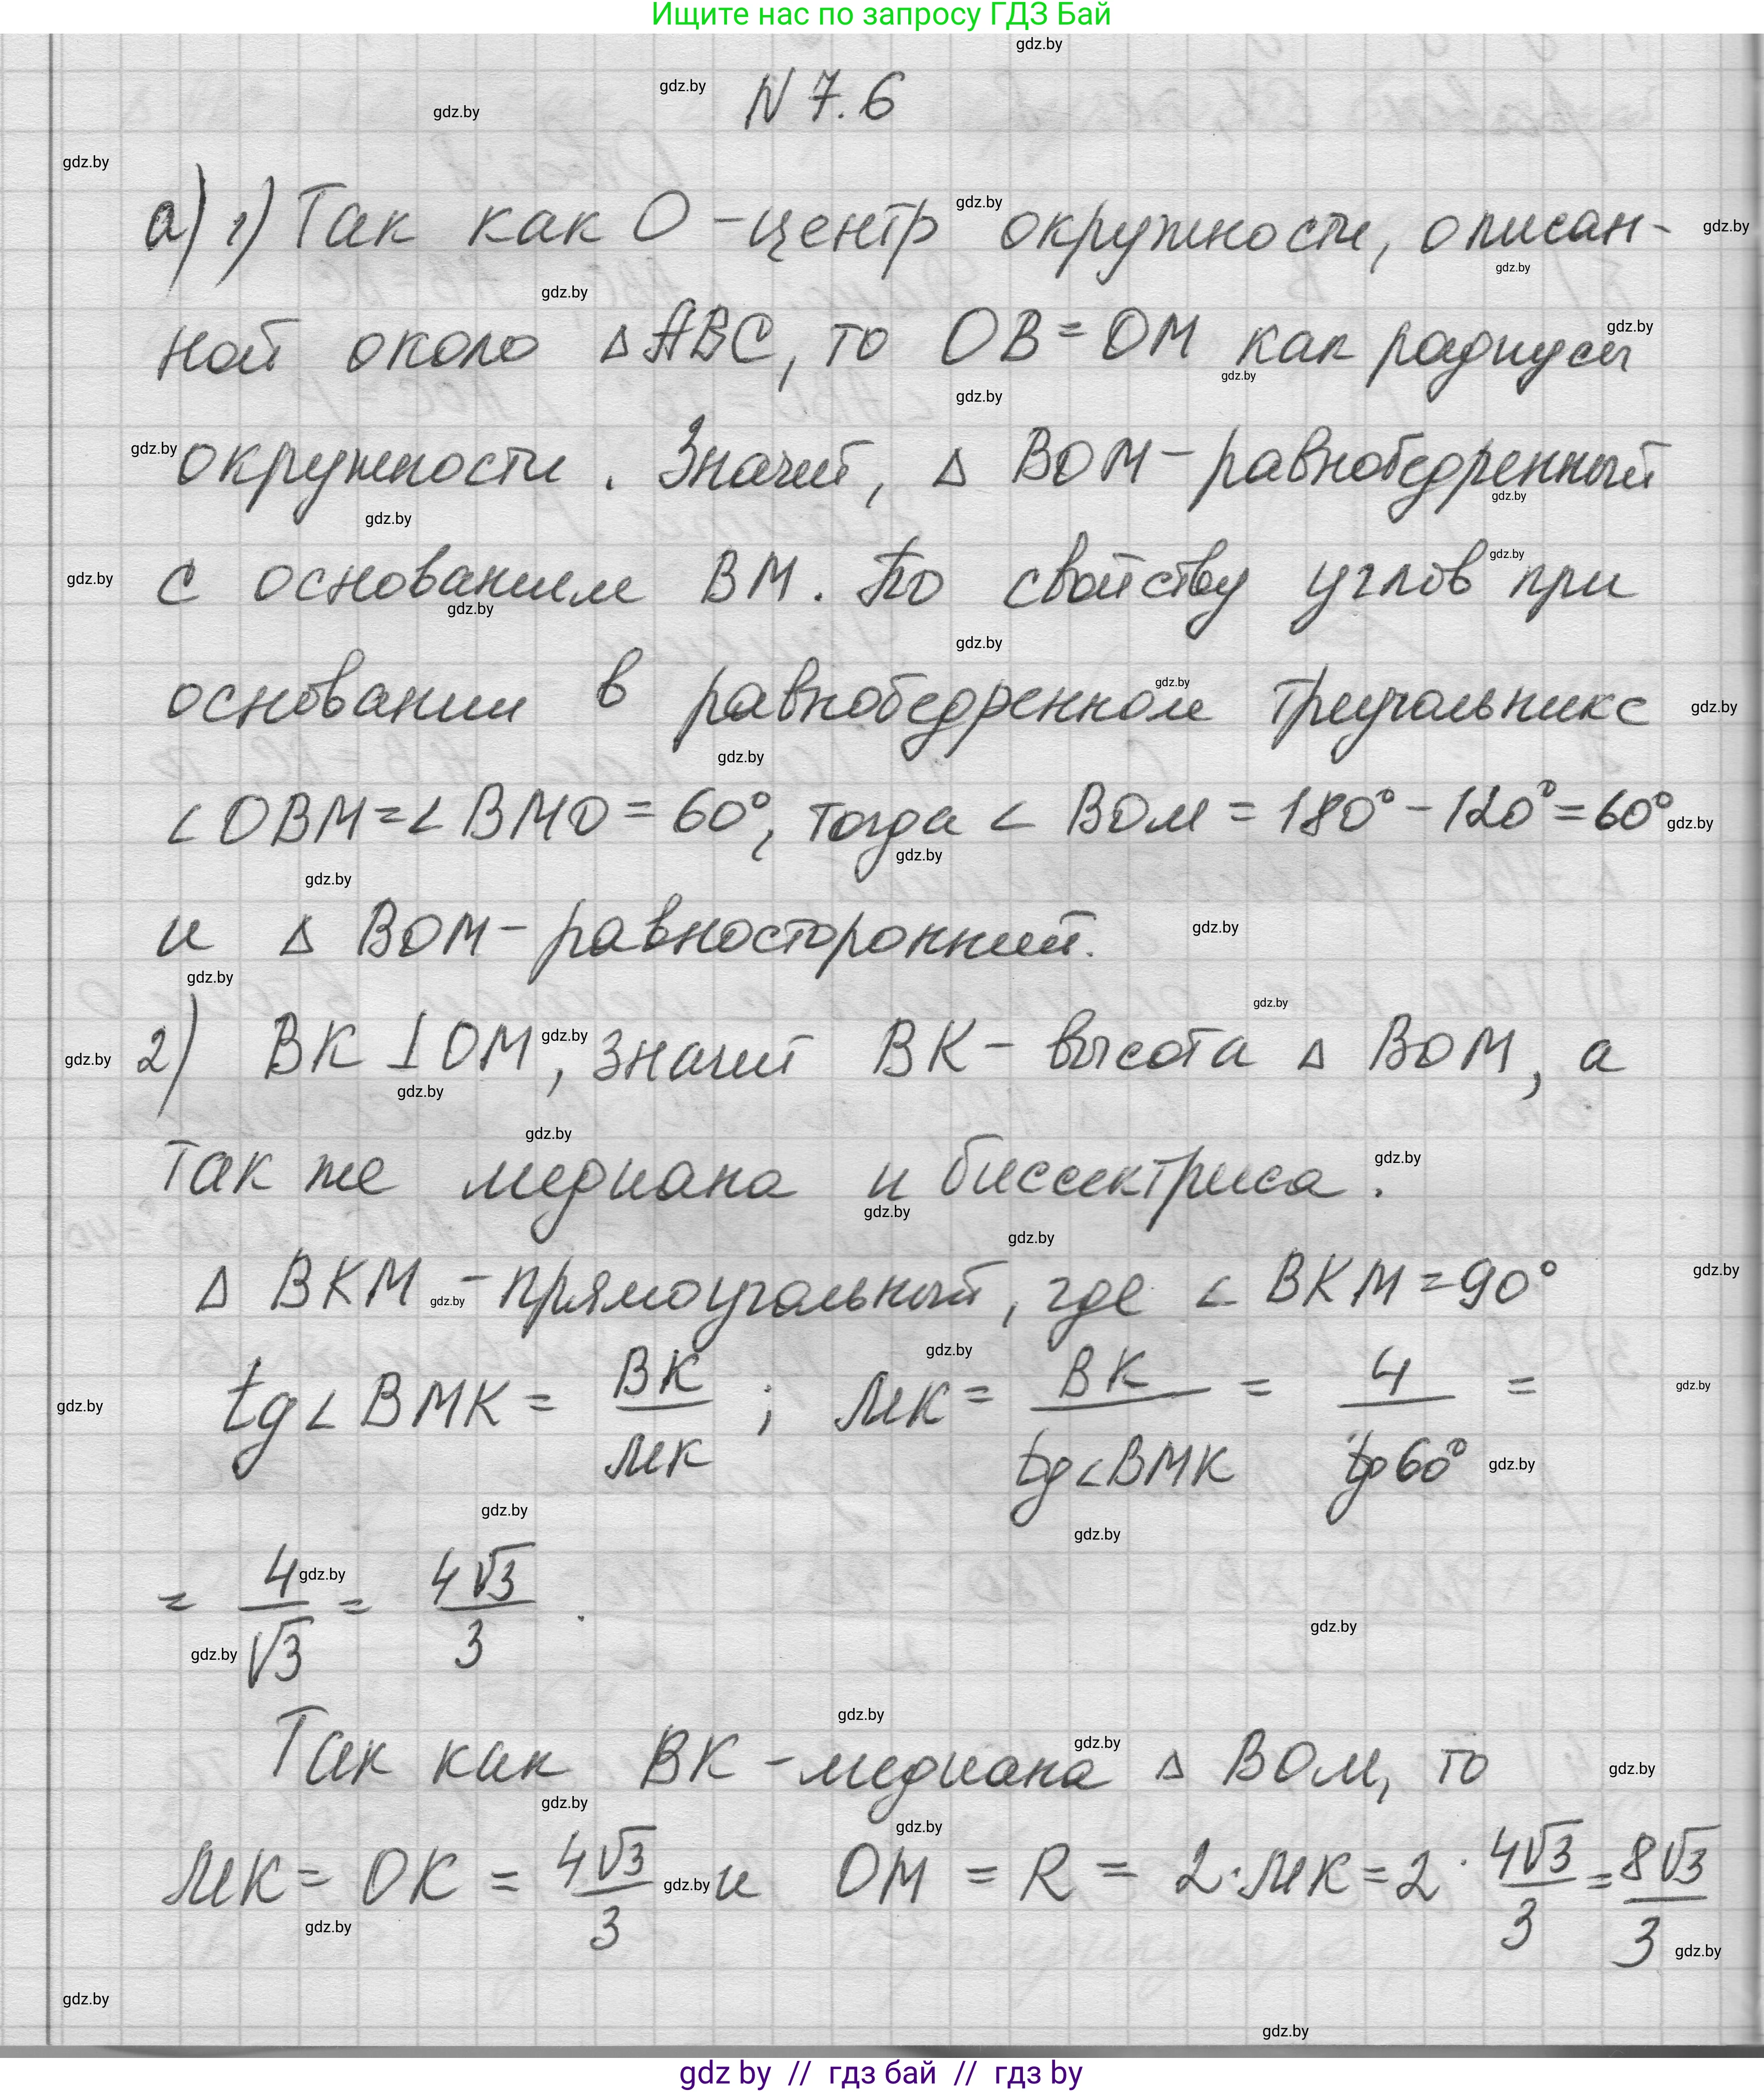 Ищите нас по запросу ГДЗ Бай
N 7.6
а) 1) Так как O - центр окружности, описан-
ной около △ABC, то OB = OM как радиусы
окружности. Значит, △ BOM - равнобедренный
с основанием BM. По свойству углов при
основании в равнобедренном треугольнике
∠OBM = ∠BMO = 60°, тогда ∠ BOM = 180° - 120° = 60°
и △ BOM - равносторонний.
2) BK ⊥ OM, значит BK - высота △ BOM, а
так же медиана и биссектриса.
△ BKM - прямоугольный, где ∠ BKM = 90°
tg∠BMK = BK/MK ; MK = BK/tg∠BMK = 4/tg60° =
= 4/√3 = 4√3/3 .
Так как BK - медиана △ BOM, то
MK = OK = 4√3/3 и OM = R = 2·MK = 2 · 4√3/3 = 8√3/3
gdz by // гдз бай // гдз by